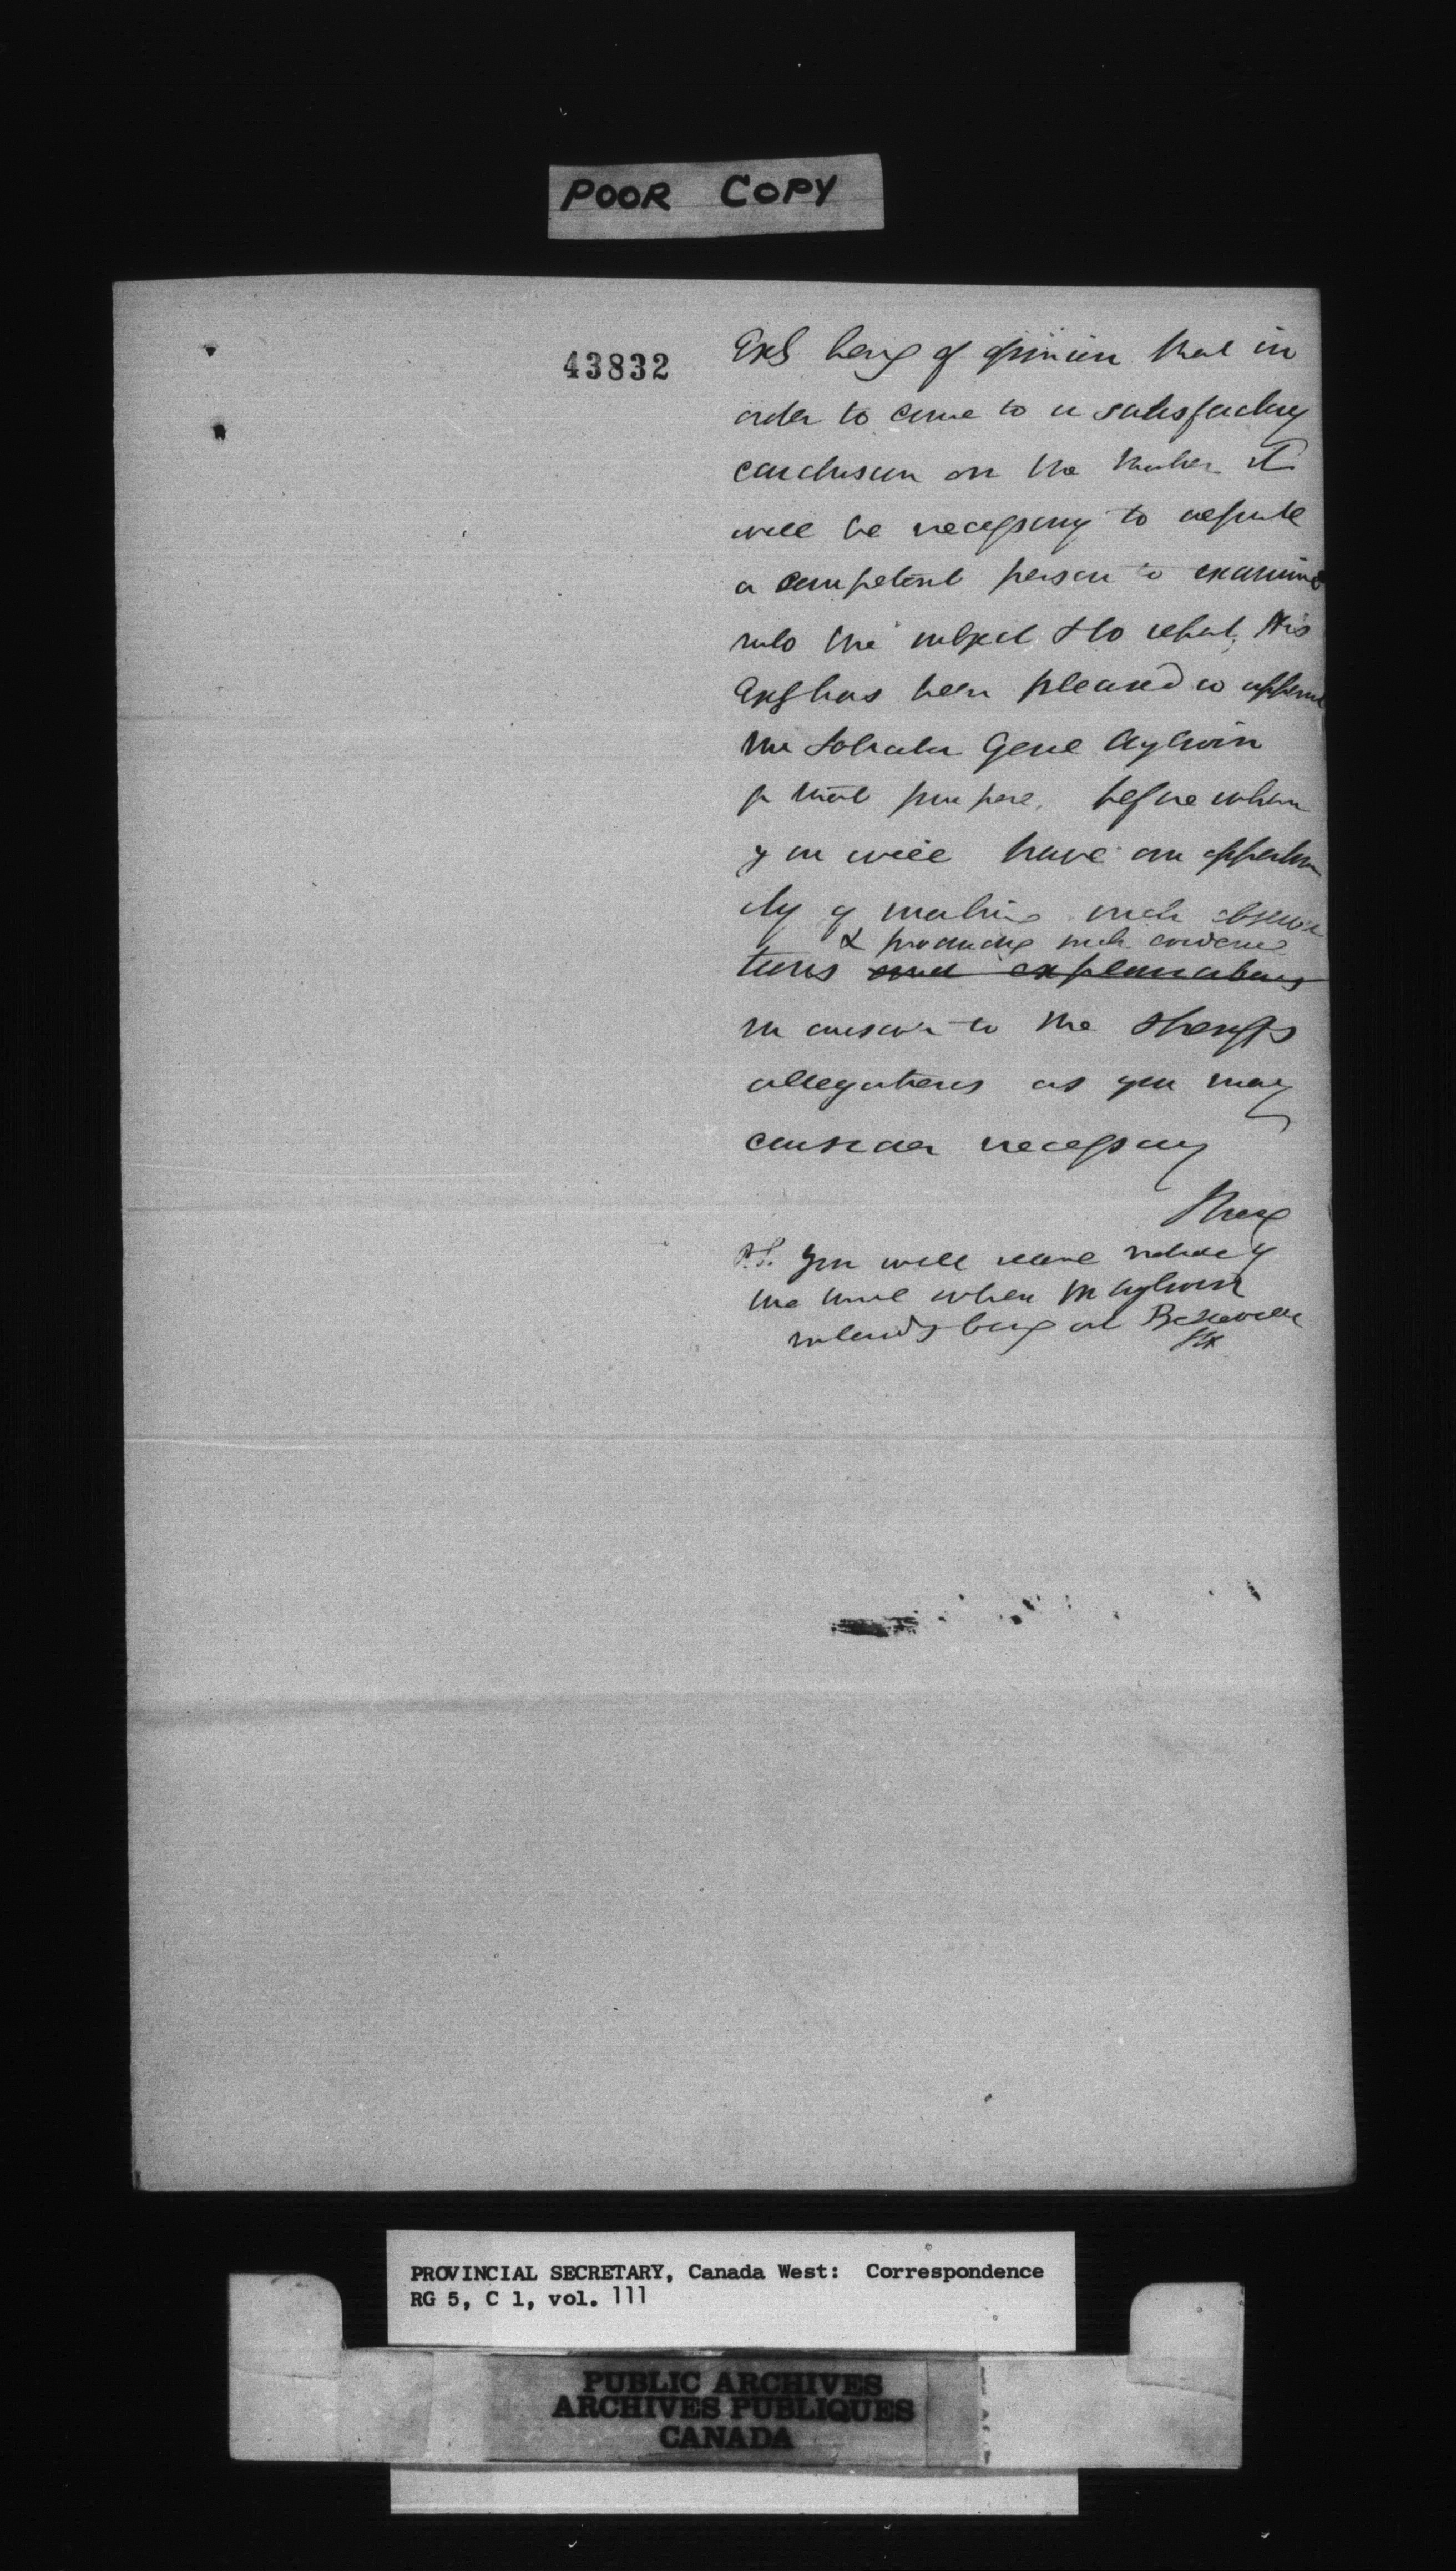 POOR COPY
43832
Exy being of opinion that in
order to come to a satisfactory
conclusion on the matter it
will be necessary to depute
a competent person to examine
into the subject & to that His
Exy has been pleased to appoint
Mr Solicitor Genl Aylwin
for that purpose, before whom
you will have an opportun
ity of making such observa
& producing such evidence
tions and explanations
in answer to the Sheriff's
allegations as you may
consider necessary
P.S. You will receive notice of
the time when Mr Aylwin
intends being at Belleville
PROVINCIAL SECRETARY, Canada West: Correspondence
RG 5, C 1, vol. 111
PUBLIC ARCHIVES
ARCHIVES PUBLIQUES
CANADA